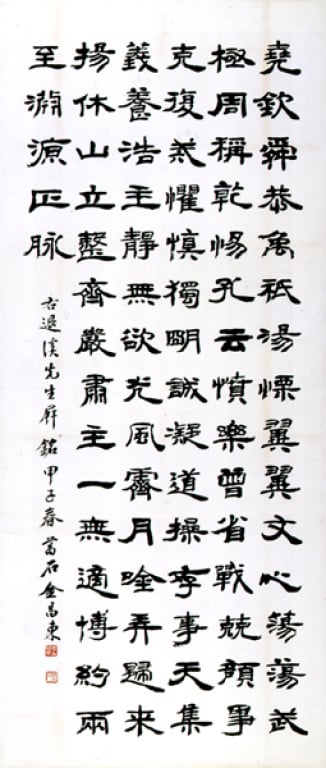 堯欽舜恭禹祗湯慄翼翼文心蕩蕩武
極周稱乾惕孔云憤樂曾省戰兢顔事
克復戒懼慎獨明誠凝道操存事天集
義養浩主靜無欲光風霽月唫弄歸來
揚休山立整齊嚴肅主一無適博約兩
至淵源正脉
右退溪先生屛銘甲子春菖石金昌東